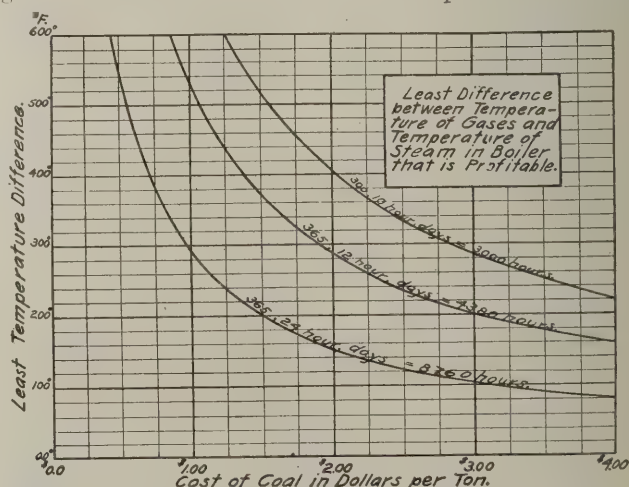 °F.
600°
500°
400°
300°
200°
100°
00°
Least Temperature Difference.
Least Difference
between Tempera-
ture of Gases and
Temperature of
Steam in Boiler
that is Profitable.
300, 10 hour, days = 3000 hours.
365, 12 hour, days = 4380 hours.
365, 24 hour, days = 8760 hours.
$0.0
$1.00
$2.00
$3.00
$4.00
Cost of Coal in Dollars per Ton.